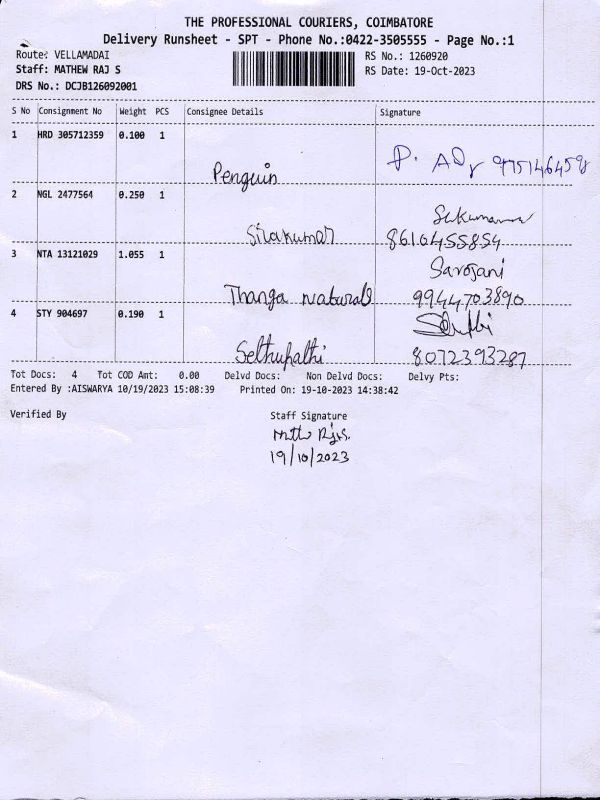 THE PROFESSIONAL COURIERS, COIMBATORE
Delivery Runsheet - SPT - Phone No.:0422-3505555 - Page No.:1
Route: VELLAMADAI
RS No.: 1260920
Staff: MATHEW RAJ S
RS Date: 19-Oct-2023
DRS No.: DCJB126092001
S No Consignment No Weight PCS Consignee Details Signature
1 HRD 305712359 0.100 1
Penguin
2 NGL 2477564 0.250 1
Sivakumar 8616455854
3 NTA 13121029 1.055 1 Sarojani
Thanga naturals 9944703890
4 STY 904697 0.190 1
Sethupathi 8072393287
Tot Docs: 4 Tot COD Amt: 0.00 Delvd Docs: Non Delvd Docs: Delvy Pts:
Entered By :AISWARYA 10/19/2023 15:08:39 Printed On: 19-10-2023 14:38:42
Verified By Staff Signature
19/10/2023